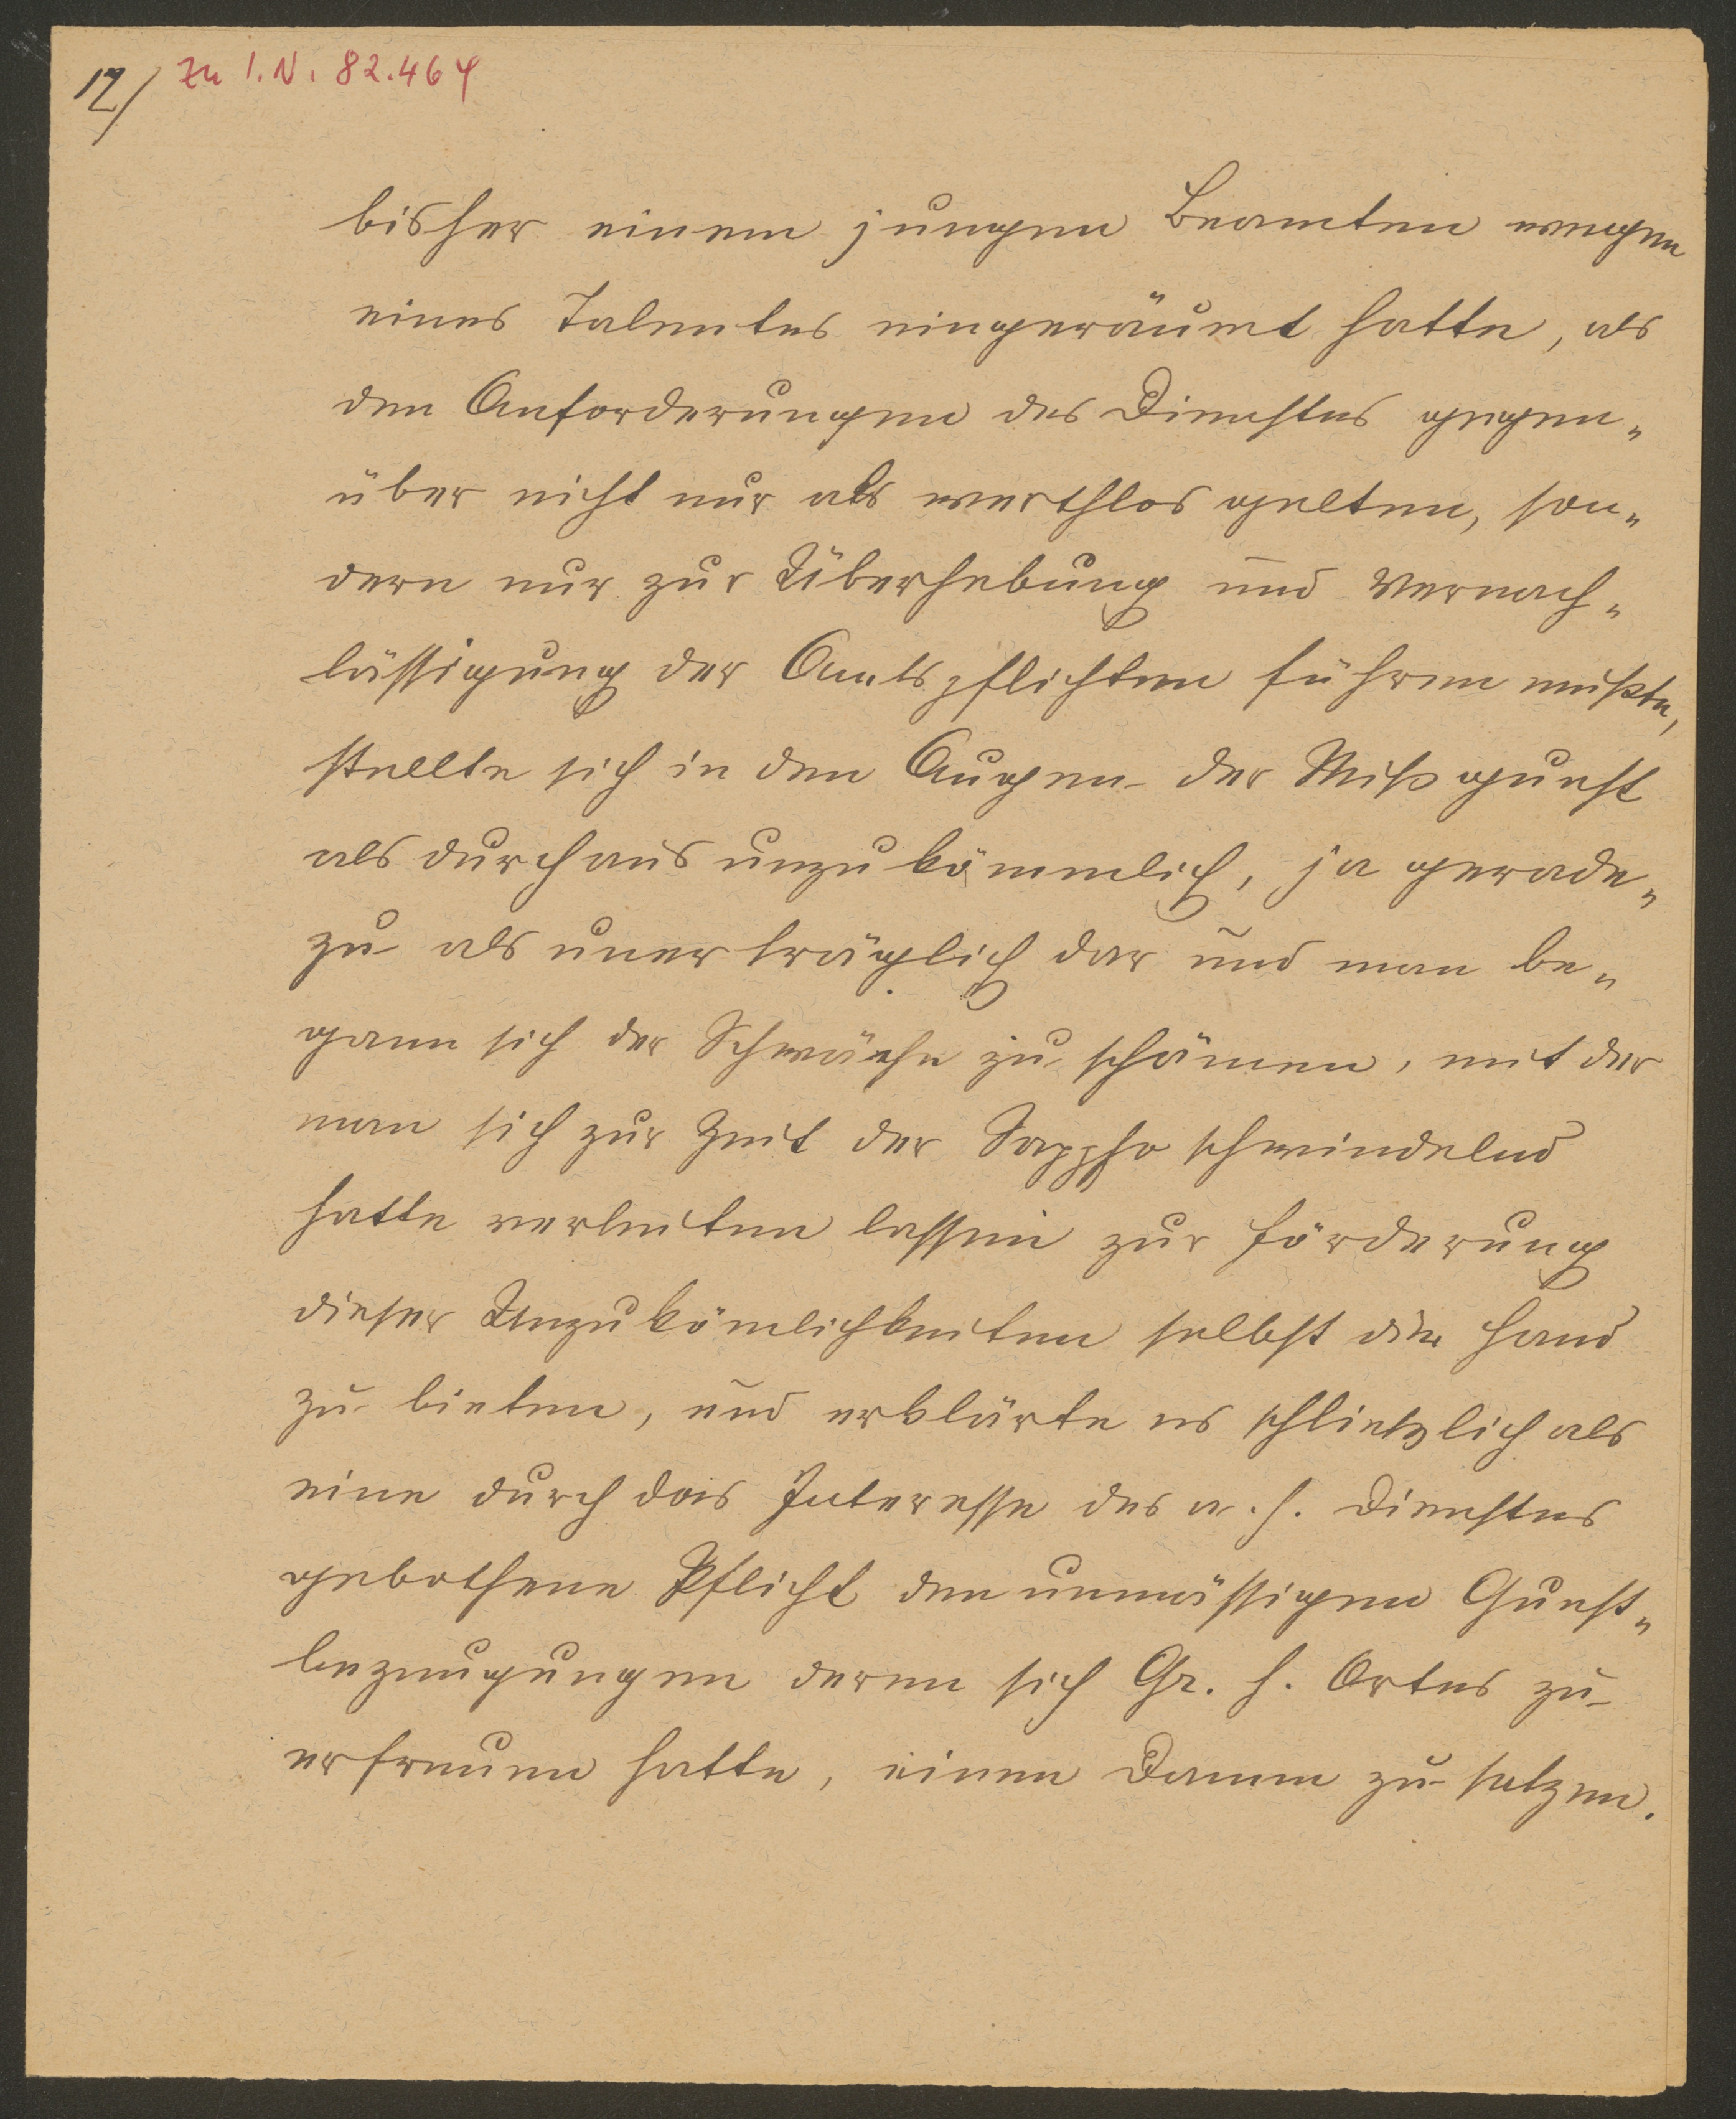 12/ Zu I.N. 82.464
bisher einem jungen Beamten wegen
eines Talentes eingeräumt hatte, als
den Anforderungen des Dienstes gegen„
über nicht nur als werthlos gelten, son„
dern nur zur Überhebung und Vernach„
lässigung der Amtspflichten führen mußte,
stellte sich in den Augen der Mißgunst
als durchaus unzukömmlich, ja gerade„
zu als unerträglich dar und man be„
gann sich der Schwäche zu schämen, mit der
man sich zur Zeit der Sappho schwindelnd
hatte verleiten lassen zur Förderung
dieser Unzukömlichkeiten selbst die Hand
zu bieten, und erklärte es schließlich als
eine durch das Interesse des a. h. Dienstes
gebothene Pflicht den unmässigen Gunst„
bezeugungen deren sich Gr. h. Ortes zu
erfreuen hatte, einen Damm zu setzen.